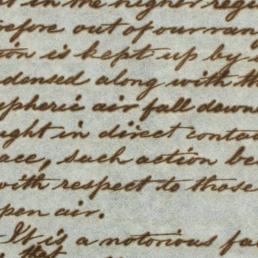 in the higher regi
before out of our ran
tion is kept up by
densed along with th
spheric air fall down
ught in direct contac
ace, such action be
with respect to those
pen air.
It is a notorious fa
that